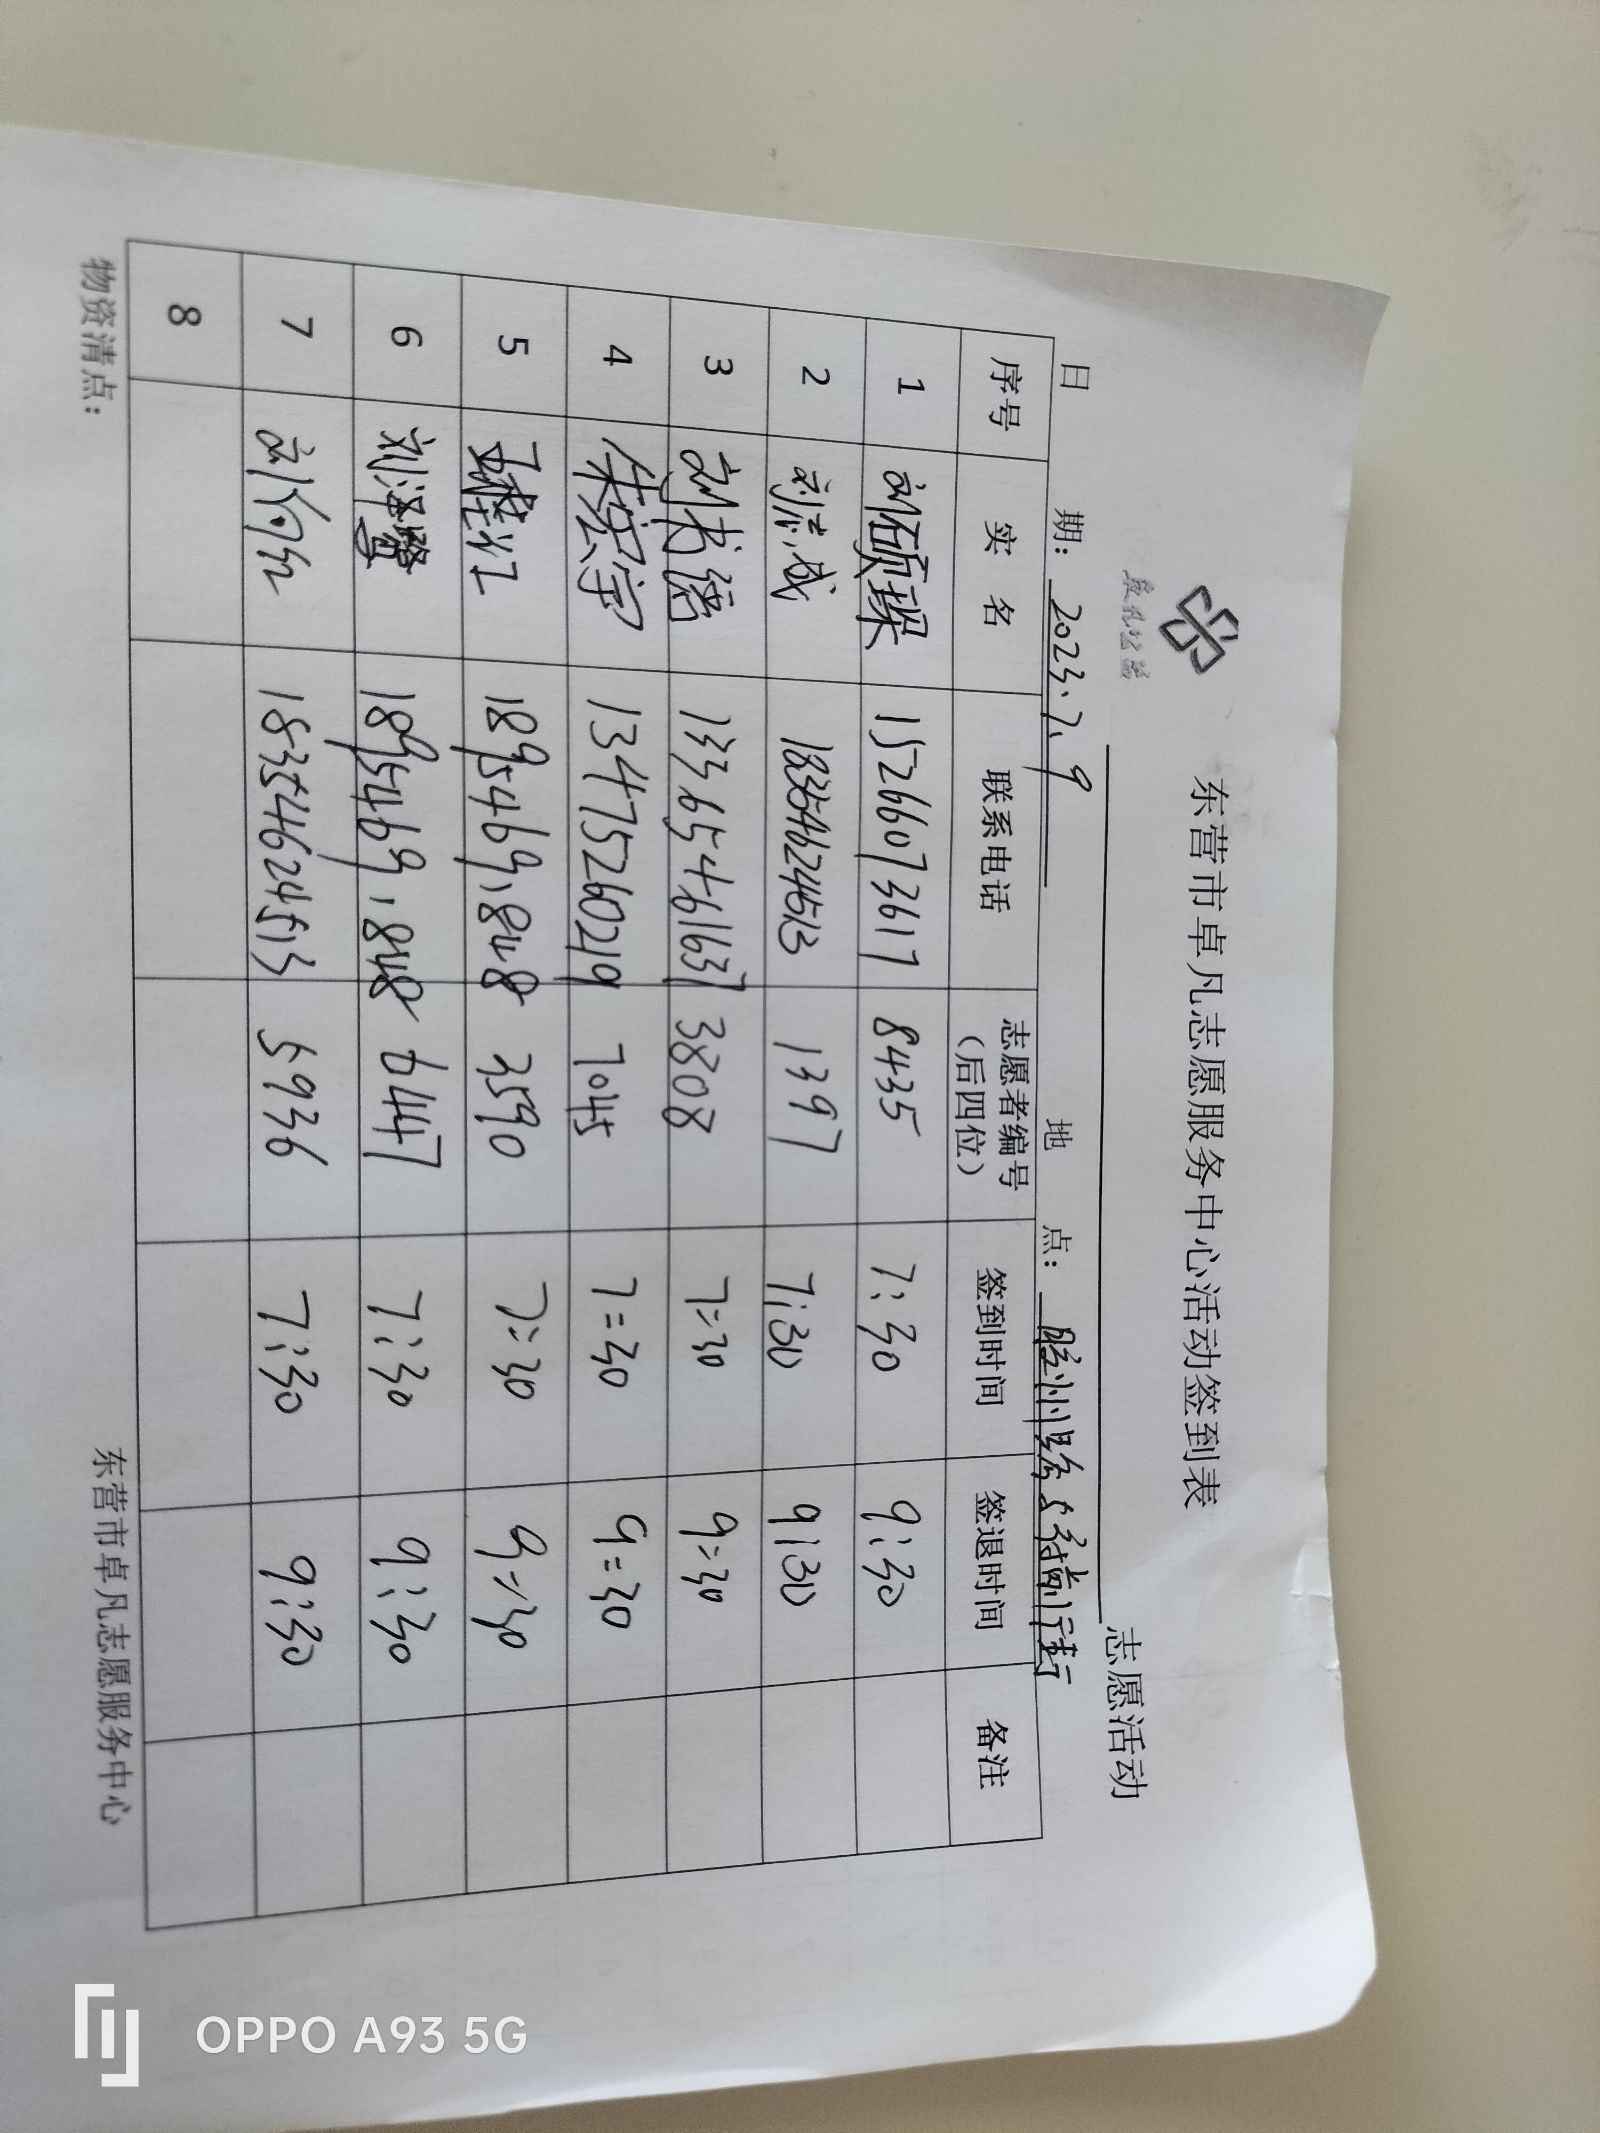 东营市卓凡志愿服务中心活动签到表
志愿活动
日 期：2023.7.9 地 点：胜州路步行街
序号 实 名 联系电话 志愿者编号（后四位） 签到时间 签退时间 备注
1 刘硕璪 15266073617 8435 7:30 9:30
2 18354624513 1397 7:30 9:30
3 13365461637 3808 7:30 9:30
4 朱宏宇 13475260219 7045 7:30 9:30
5 18954691848 3590 7:30 9:30
6 刘泽 18954691848 6447 7:30 9:30
7 18354624513 5936 7:30 9:30
8
物资清点： 东营市卓凡志愿服务中心
OPPO A93 5G